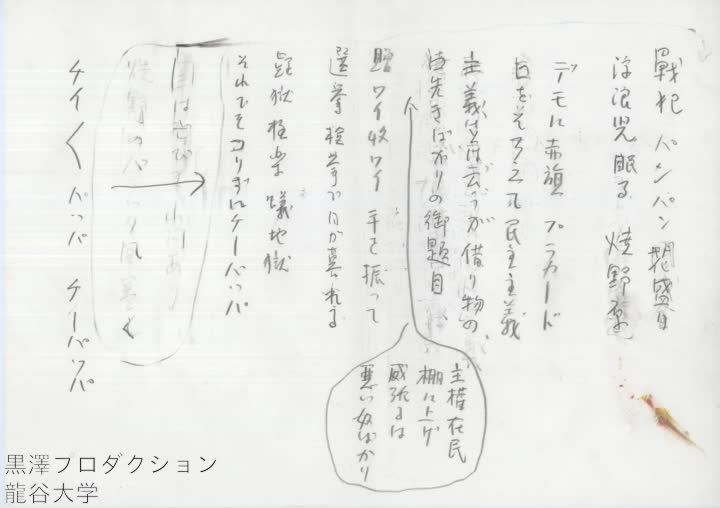 戦犯 パンパン 闇盛り
浮浪児眠る 焼野原
デモに赤旗 プラカード
口をそろえて民主主義
主義とは云うが借り物の
口先きばかりの御題目
贈ワイ収ワイ 手を振って
選挙 選挙で日が暮れる
疑獄 極楽 蟻地獄
それでもコリずにケーバッパ
国は
あり
焼野
風
く
ケイ〱 バッパ ケーバッパ
主権在民
棚に上げ
威張るは
悪い奴ばかり
黒澤プロダクション
龍谷大学